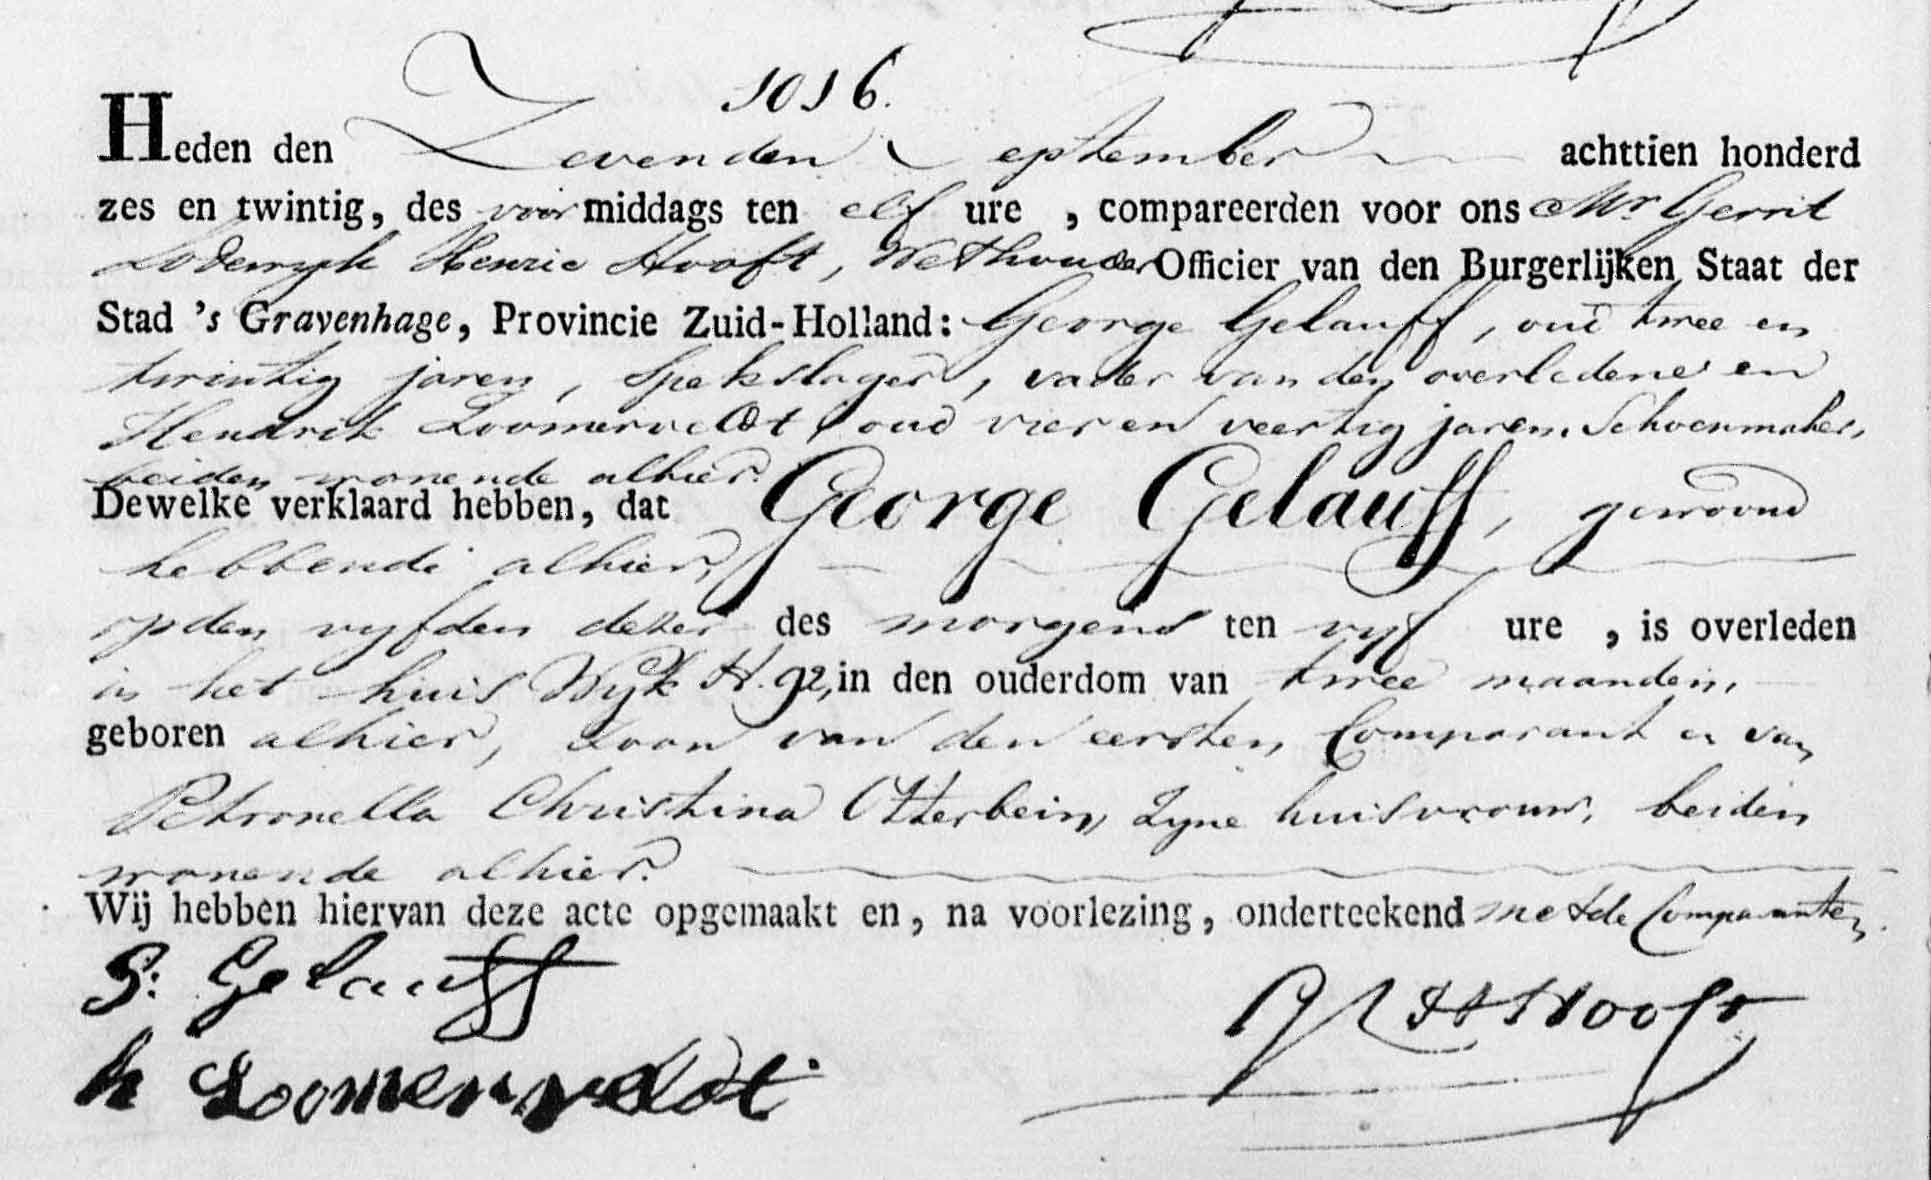 1016.
Heden den Zevenden September achttien honderd
zes en twintig, des voormiddags ten elf ure , compareerden voor ons Mr Gerrit
Lodewyk Henric Hooft, Wethouder Officier van den Burgerlijken Staat der
Stad 's Gravenhage, Provincie Zuid-Holland: George Gelauff, oud twee en
twintig jaren, Spekslager, vader van den overledene en
Hendrik Loomerveldt, oud vier en veertig jaren, Schoenmaker,
beiden wonende alhier.
Dewelke verklaard hebben, dat George Gelauff, gewoond
hebbende alhier,
op den vyfden dezer des morgens ten vyf ure , is overleden
in het huis Wyk H. 92, in den ouderdom van twee maanden,
geboren alhier, zoon van den eersten Comparant en van
Petronella Christina Otterbein, Zyne huisvrouw, beiden
wonende alhier.
Wij hebben hiervan deze acte opgemaakt en, na voorlezing, onderteekend met de Comparanten.
G: Gelauff
GLH Hooft
h Loomerveldt.